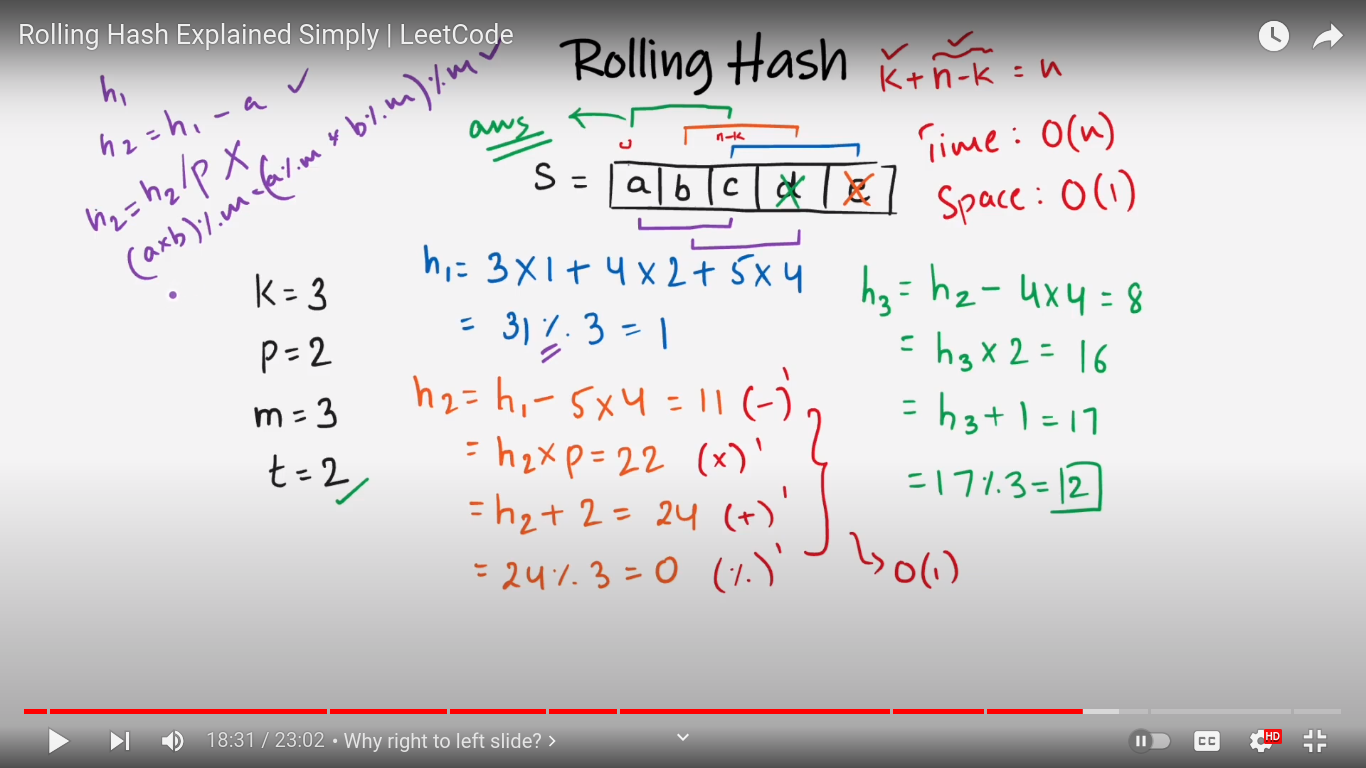 Rolling Hash Explained Simply | LeetCode
Rolling Hash
k + n-k = n
h₁
h₂ = h₁ - a ✓
h₂ = h₂/p X
(a×b)%m = (a%m * b%m)%m ✓
ans
n-k
S = a b c d e
Time: O(n)
Space: O(1)
k = 3
p = 2
m = 3
t = 2
h₁ = 3×1 + 4×2 + 5×4
= 31 % 3 = 1
h₂ = h₁ - 5×4 = 11 (-)'
= h₂×p = 22 (×)'
= h₂ + 2 = 24 (+)'
= 24 % 3 = 0 (%)'
O(1)
h₃ = h₂ - 4×4 = 8
= h₃ × 2 = 16
= h₃ + 1 = 17
= 17 % 3 = 2
18:31 / 23:02 • Why right to left slide? >
CC
HD